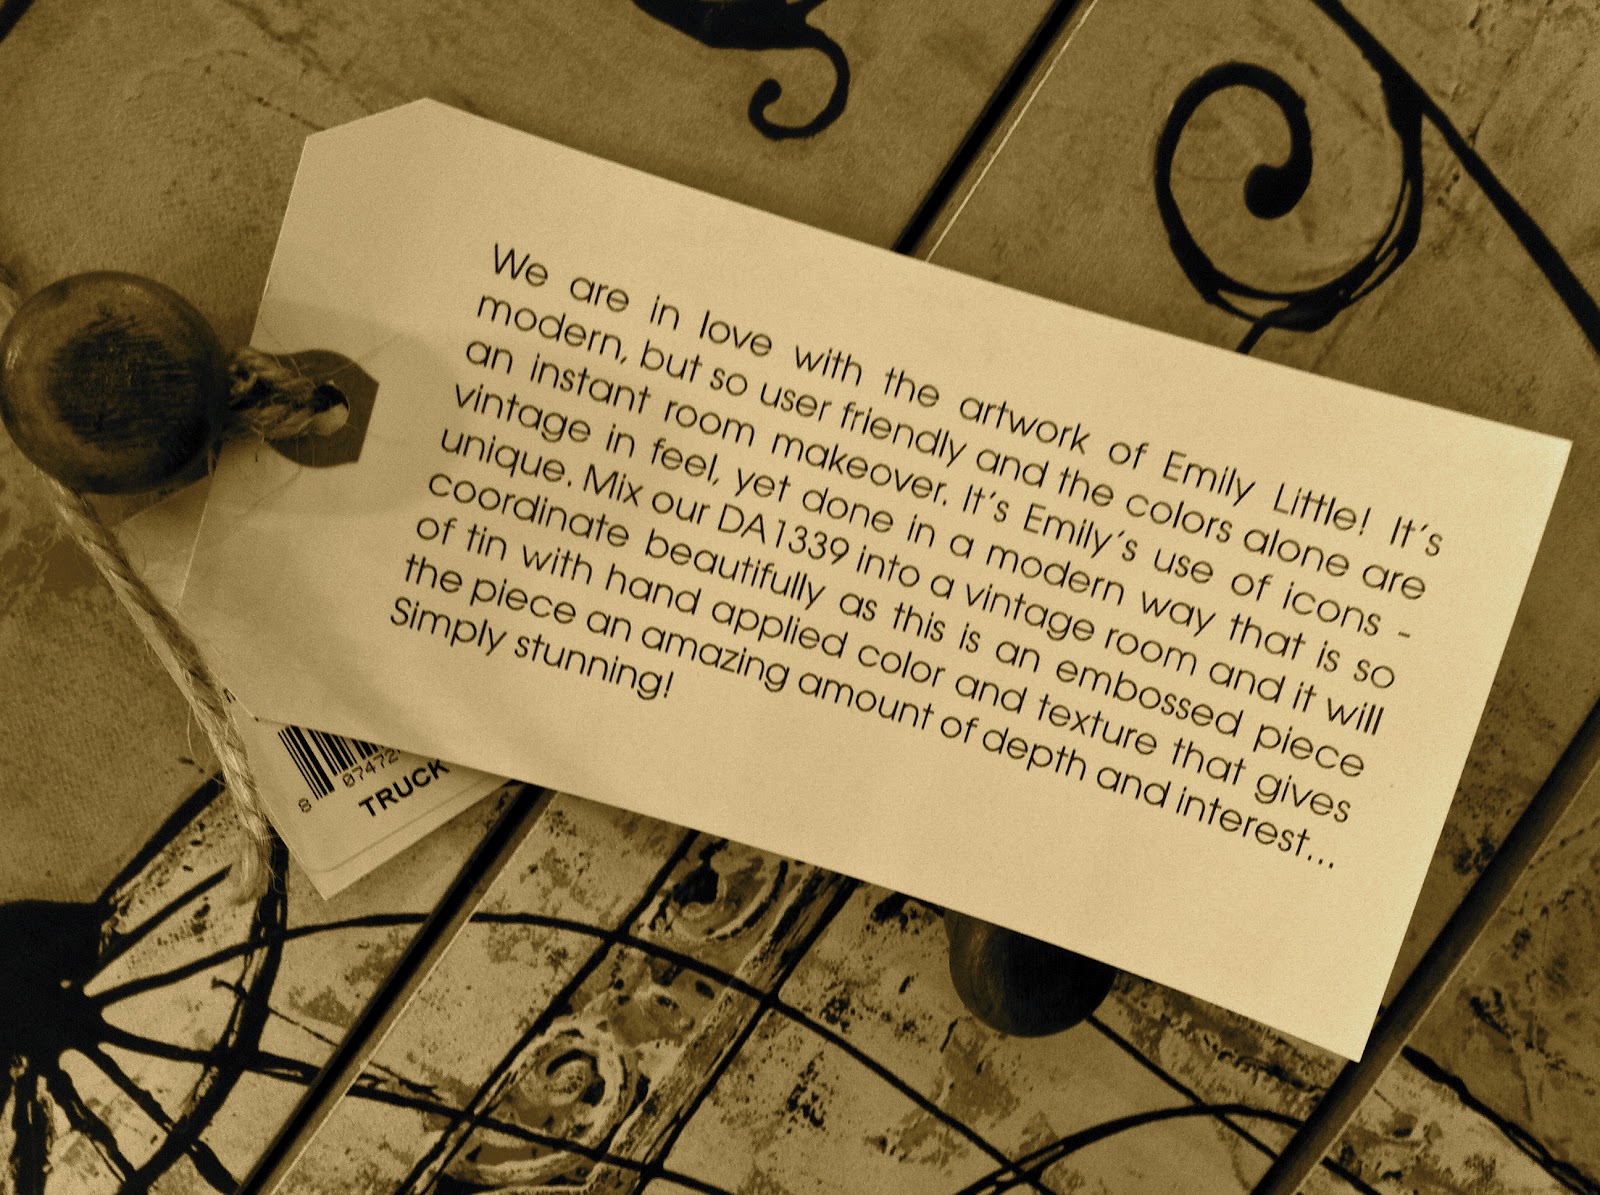 We are in love with the artwork of Emily Little! It's
modern, but so user friendly and the colors alone are
an instant room makeover. It's Emily's use of icons -
vintage in feel, yet done in a modern way that is so
unique. Mix our DA1339 into a vintage room and it will
coordinate beautifully as this is an embossed piece
of tin with hand applied color and texture that gives
the piece an amazing amount of depth and interest...
Simply stunning!
8 07472
TRUCK